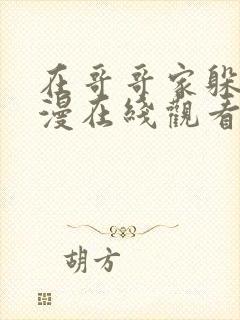 在哥哥家躲
漫在綫觀看
胡方